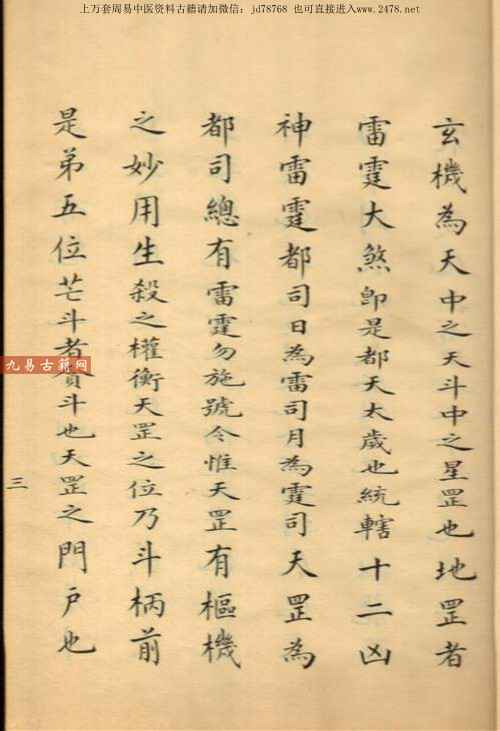 上万套周易中医资料古籍请加微信：jd78768 也可直接进入www.2478.net
玄機為天中之天斗中之星罡也地罡者
雷霆大煞卽是都天太歲也統轄十二凶
神雷霆都司日為雷司月為霆司天罡為
都司總有雷霆勿施號令惟天罡有樞機
之妙用生殺之權衡天罡之位乃斗柄前
是弟五位芒斗者賁斗也天罡之門戶也
九易古籍网
三